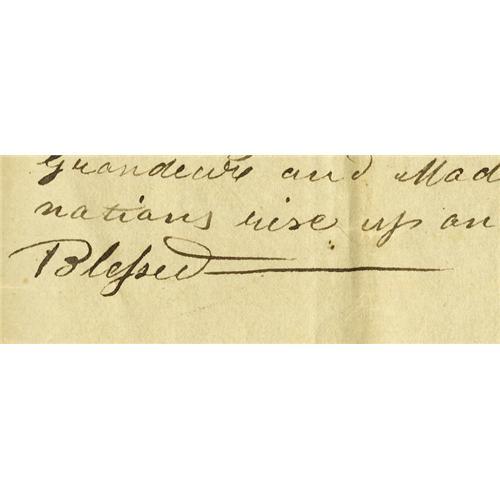 Grandeure and Mad
nations rise up an
Blessed